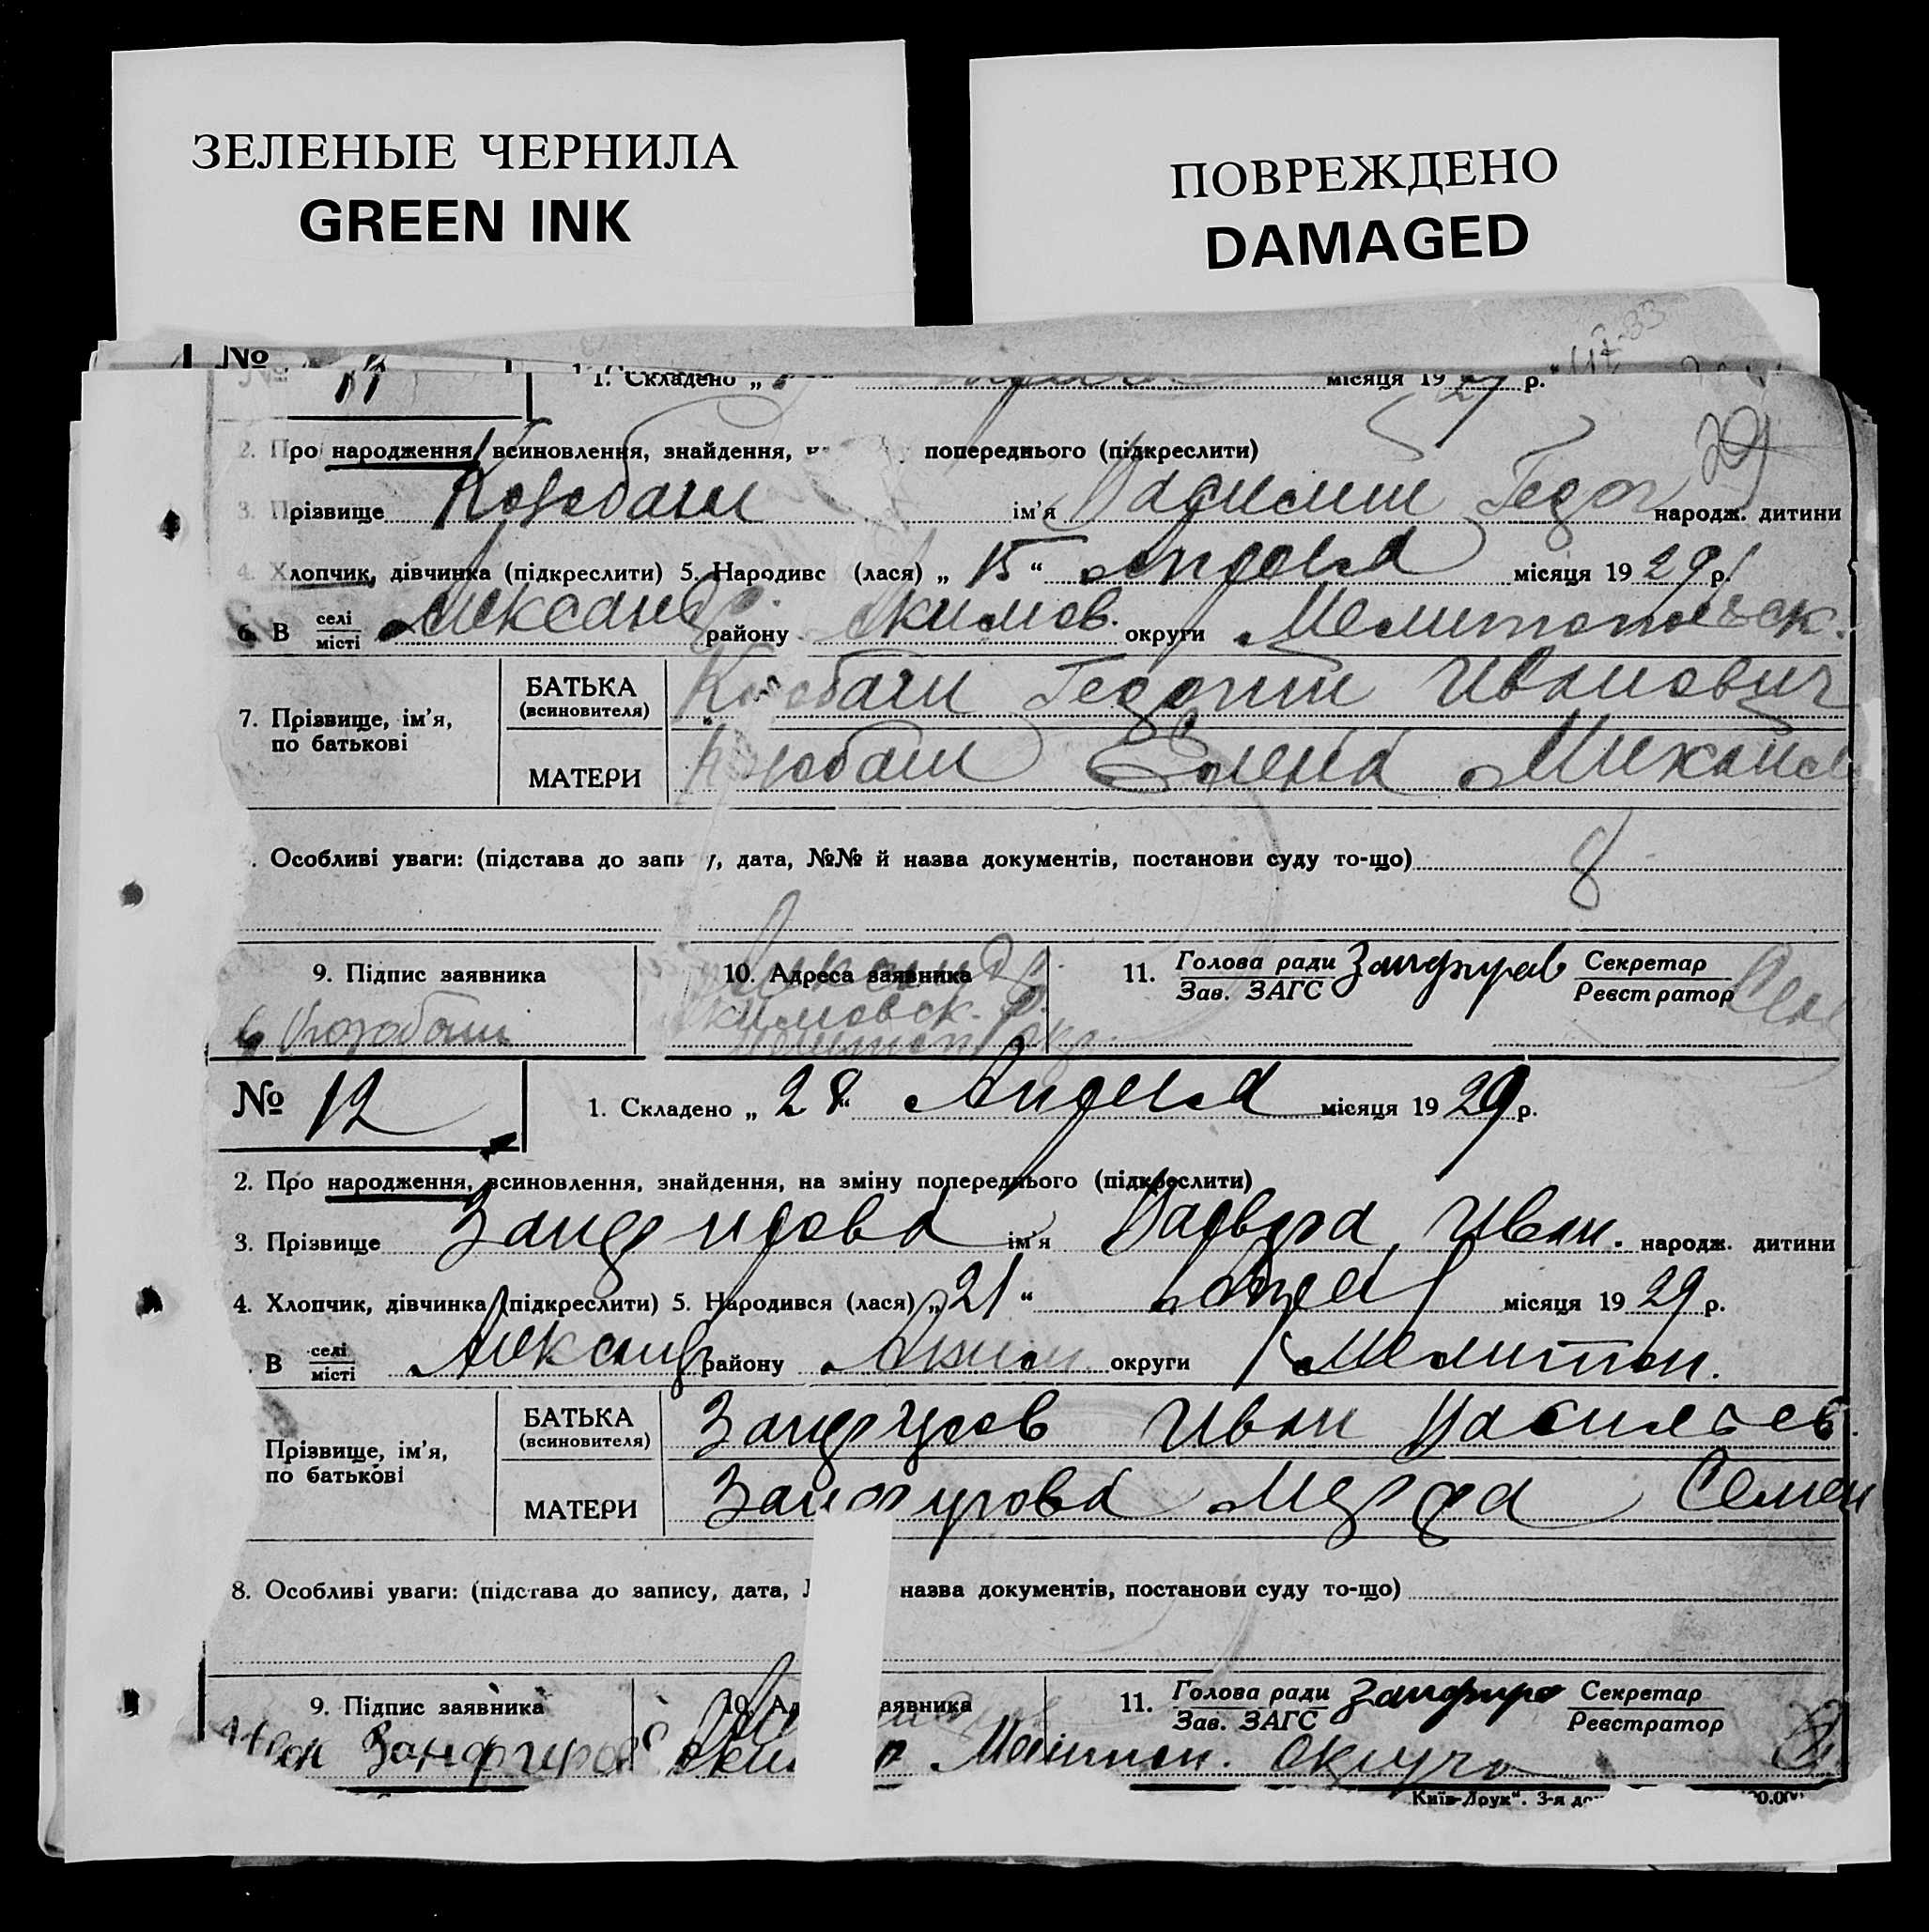 ЗЕЛЕНЫЕ ЧЕРНИЛА
GREEN INK
ПОВРЕЖДЕНО
DAMAGED
№
11 1. Складено „ місяця 1929 р.
2. Про народження, всиновлення, знайдення, попереднього (підкреслити)
29
3. Прізвище Коробаги ім'я Василий Георг народж. дитини
4. Хлопчик, дівчинка (підкреслити) 5. Народивс (лася) „ 15 “ Апреля місяця 1929 р.
6. В селі/місті Александр. району Акимов. округи Мелитопольск.
7. Прізвище, ім'я, по батькові
БАТЬКА (всиновителя) Георгий Иванович
МАТЕРИ Елена Михайл
. Особливі уваги: (підстава до запи у, дата, №№ й назва документів, постанови суду то-що)
9. Підпис заявника 10. Адреса заявника 11. Голова ради/Зав. ЗАГС Занфиров Секретар/Реєстратор
Александр.
Акимовск. р.
№ 12 1. Складено „ 28 “ Апреля місяця 1929 р.
2. Про народження, всиновлення, знайдення, на зміну попереднього (підкреслити)
3. Прізвище Занфирова ім'я Варвара Иван. народж. дитини
4. Хлопчик, дівчинка (підкреслити) 5. Народився (лася) „ 21 “ Апреля місяця 1929 р.
В селі/місті Александр району Аким округи Мелитоп.
Прізвище, ім'я, по батькові
БАТЬКА (всиновителя) Занфиров Иван Васильев.
МАТЕРИ Занфирова Семен
8. Особливі уваги: (підстава до запису, дата, назва документів, постанови суду то-що)
9. Підпис заявника 10. Ад аявника 11. Голова ради/Зав. ЗАГС Занфиро Секретар/Реєстратор
Занфиров Мелитоп. округа
Київ-Друк“. 3-я